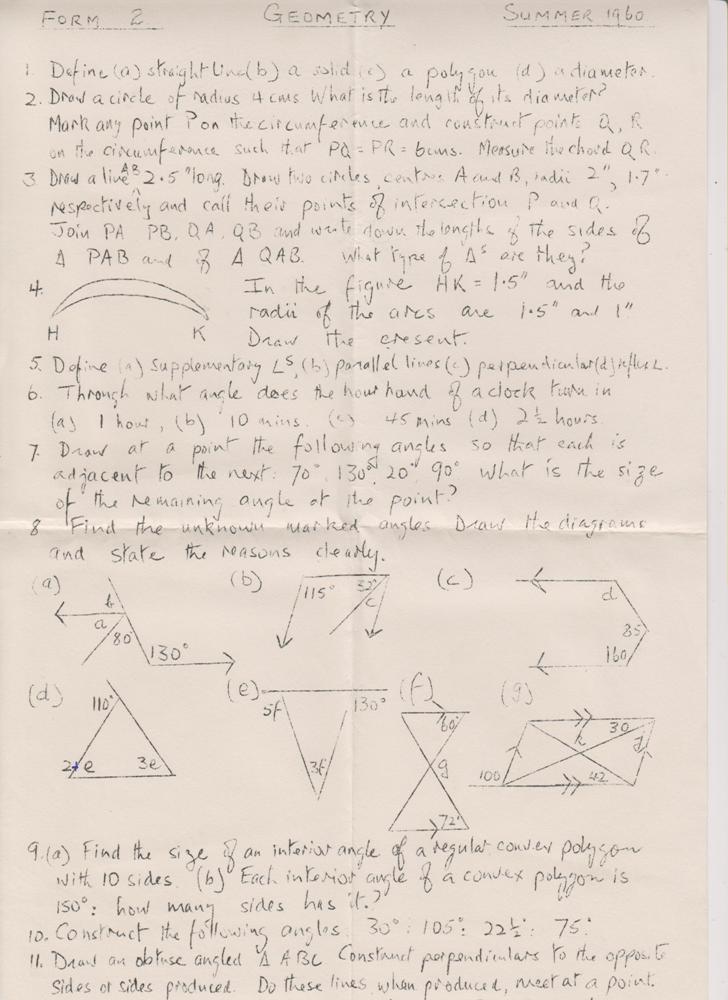 FORM 2 GEOMETRY SUMMER 1960
1. Define (a) straight line (b) a solid (c) a polygon (d) a diameter.
2. Draw a circle of radius 4 cms What is the length of its diameter?
Mark any point P on the circumference and construct points Q, R
on the circumference such that PQ = PR = 6cms. Measure the chord QR.
3. Draw a line AB 2.5" long. Draw two circles, centres A and B, radii 2", 1.7"
respectively and call their points of intersection P and Q.
Join PA PB, QA, QB and write down the lengths of the sides of
Δ PAB and of Δ QAB. What type of Δs are they?
4. In the figure HK = 1.5" and the
radii of the arcs are 1.5" and 1"
H K Draw the cresent.
5. Define (a) supplementary ∠s, (b) parallel lines (c) perpendicular (d) reflex ∠.
6. Through what angle does the hour hand of a clock turn in
(a) 1 hour, (b) 10 mins. (c) 45 mins (d) 2½ hours.
7. Draw at a point the following angles so that each is
adjacent to the next: 70°, 130°, 20°, 90° What is the size
of the remaining angle at the point?
8 Find the unknown marked angles Draw the diagrams
and state the reasons clearly.
(a) b a 80 130°
(b) 115° 32° c
(c) d 85 160
(d) 110° 2e 3e
(e) 5f 130° 3f
(f) 60° g 72°
(g) h 30 j 100 42
9. (a) Find the size of an interior angle of a regular convex polygon
with 10 sides. (b) Each interior angle of a convex polygon is
150°: how many sides has it?
10. Construct the following angles. 30°: 105°: 22½°: 75°.
11. Draw an obtuse angled Δ ABC Construct perpendiculars to the opposite
sides or sides produced. Do these lines when produced, meet at a point.